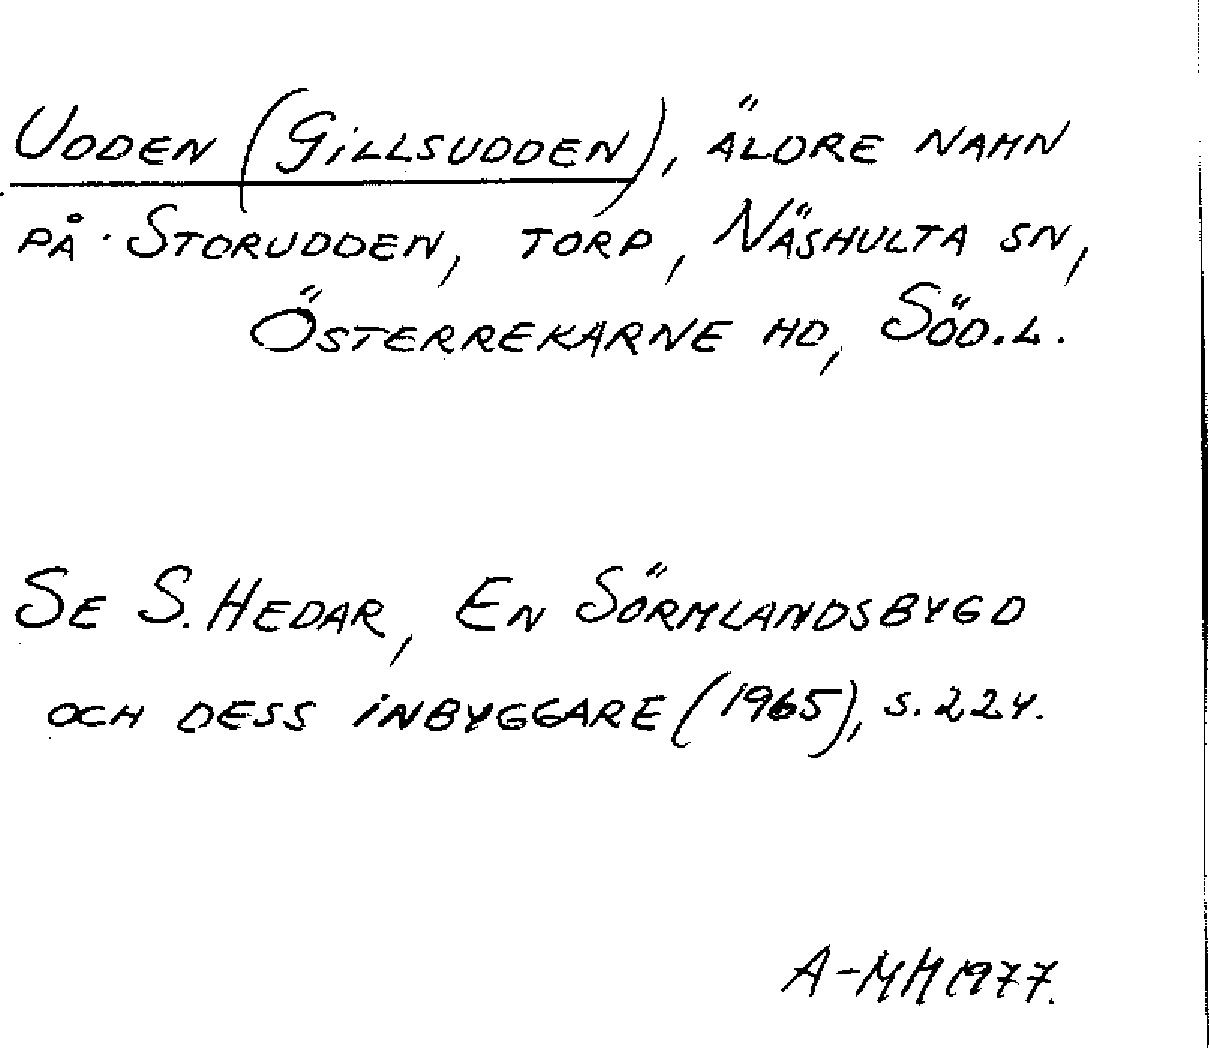 Udden (Gillsudden), äldre namn
på Storudden, torp, Näshulta sn,
Österrekarne hd, Söd.l.
Se S. Hedar, En Sörmlandsbygd
och dess inbyggare (1965), s. 224.
A-MH 1977.